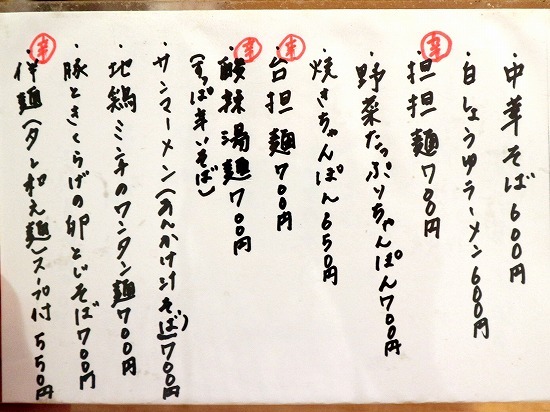 ・中華そば600円
・白しょうゆラーメン600円
辛
・担担麺700円
・野菜たっぷりちゃんぽん700円
・焼きちゃんぽん650円
辛
・台担麺700円
辛
・酸辣湯麺700円
(すっぱ辛いそば)
・サンマーメン(あんかけ汁そば)700円
・地鶏ミンチのワンタン麺700円
・豚ときくらげの卵とじそば700円
辛
・伴麺(タレ和え麺)スープ付550円